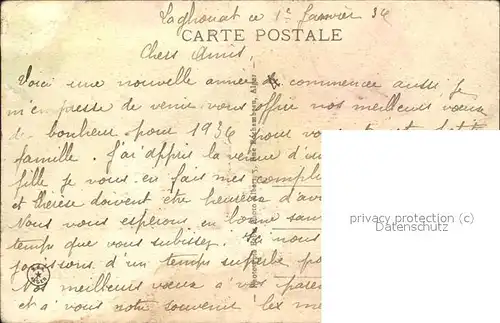 Laghouat ce 1er Janvier 36
CARTE POSTALE
Chers Amis,
Voici une nouvelle année commence aussi je
m'empresse de venir vous offrir nos meilleurs vœux
de bonheur pour 1936 pour vous et
famille. J'ai appris la venue d'une
fille je vous en fais mes compl
et Thérèse doivent être heureux d'av
Nous vous espérons en bonne san
temps que vous subissez. nous
jouissons d'un temps superbe
Nos meilleurs vœux à vos paren
et à vous notre souvenir les me
privacy protection (c)
ansichtskarten-center.de